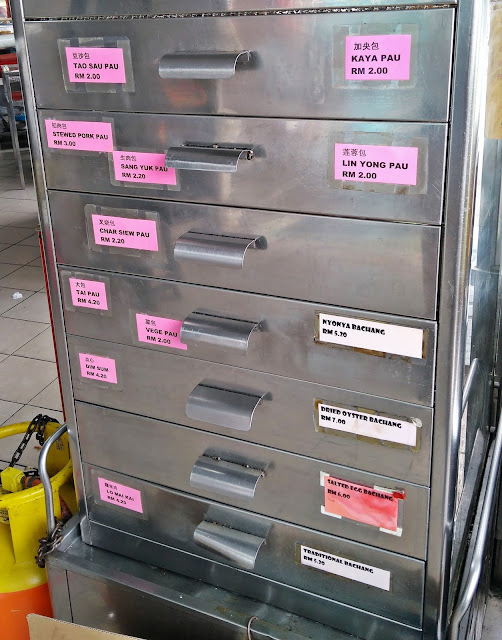 豆沙包
TAO SAU PAU
RM 2.00
加央包
KAYA PAU
RM 2.00
STEWED PORK PAU
RM 3.00
生肉包
SANG YUK PAU
RM 2.20
莲蓉包
LIN YONG PAU
RM 2.00
叉烧包
CHAR SIEW PAU
RM 2.20
大包
TAI PAU
RM 4.20
菜包
VEGE PAU
RM 2.00
NYONYA BACHANG
RM 5.20
点心
DIM SUM
RM 4.20
DRIED OYSTER BACHANG
RM 7.00
SALTED EGG BACHANG
RM 6.00
LO MAI KAI
RM 4.20
TRADITIONAL BACHANG
RM 5.20